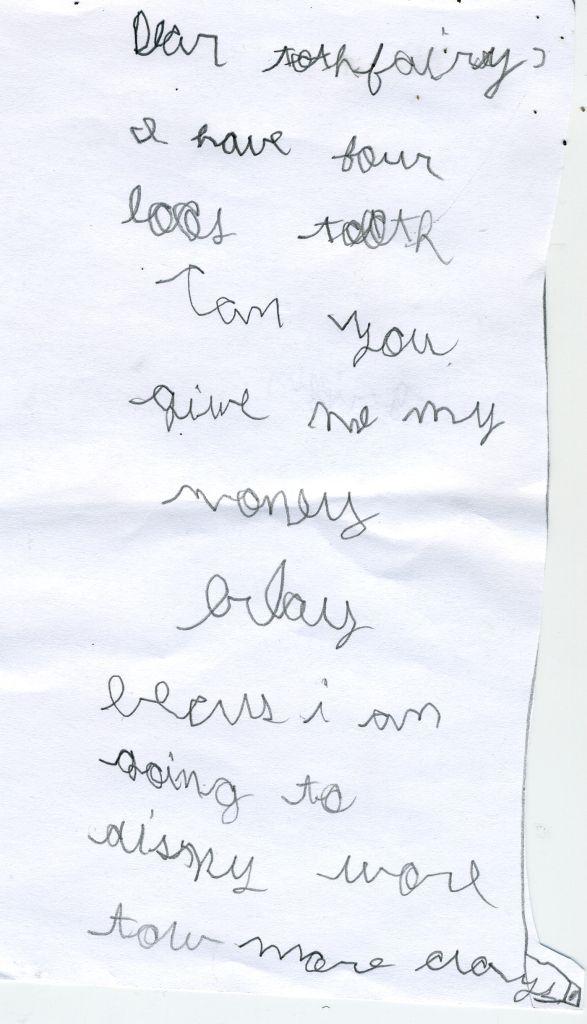 Dear tothfairy,
I have four
loos tooth
Can you
give me my
money
erlay
becus i am
going to
disny worl
tow more days